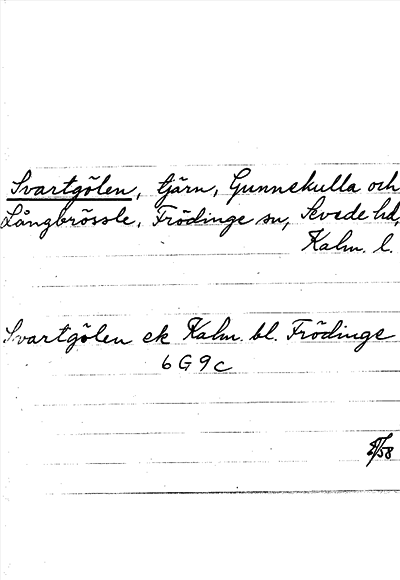 Svartgölen, tjärn, Gunnekulla och
Långbrössle, Frödinge sn, Sevede hd,
Kalm. l.
Svartgölen ek Kalm. bl. Frödinge
6G9c